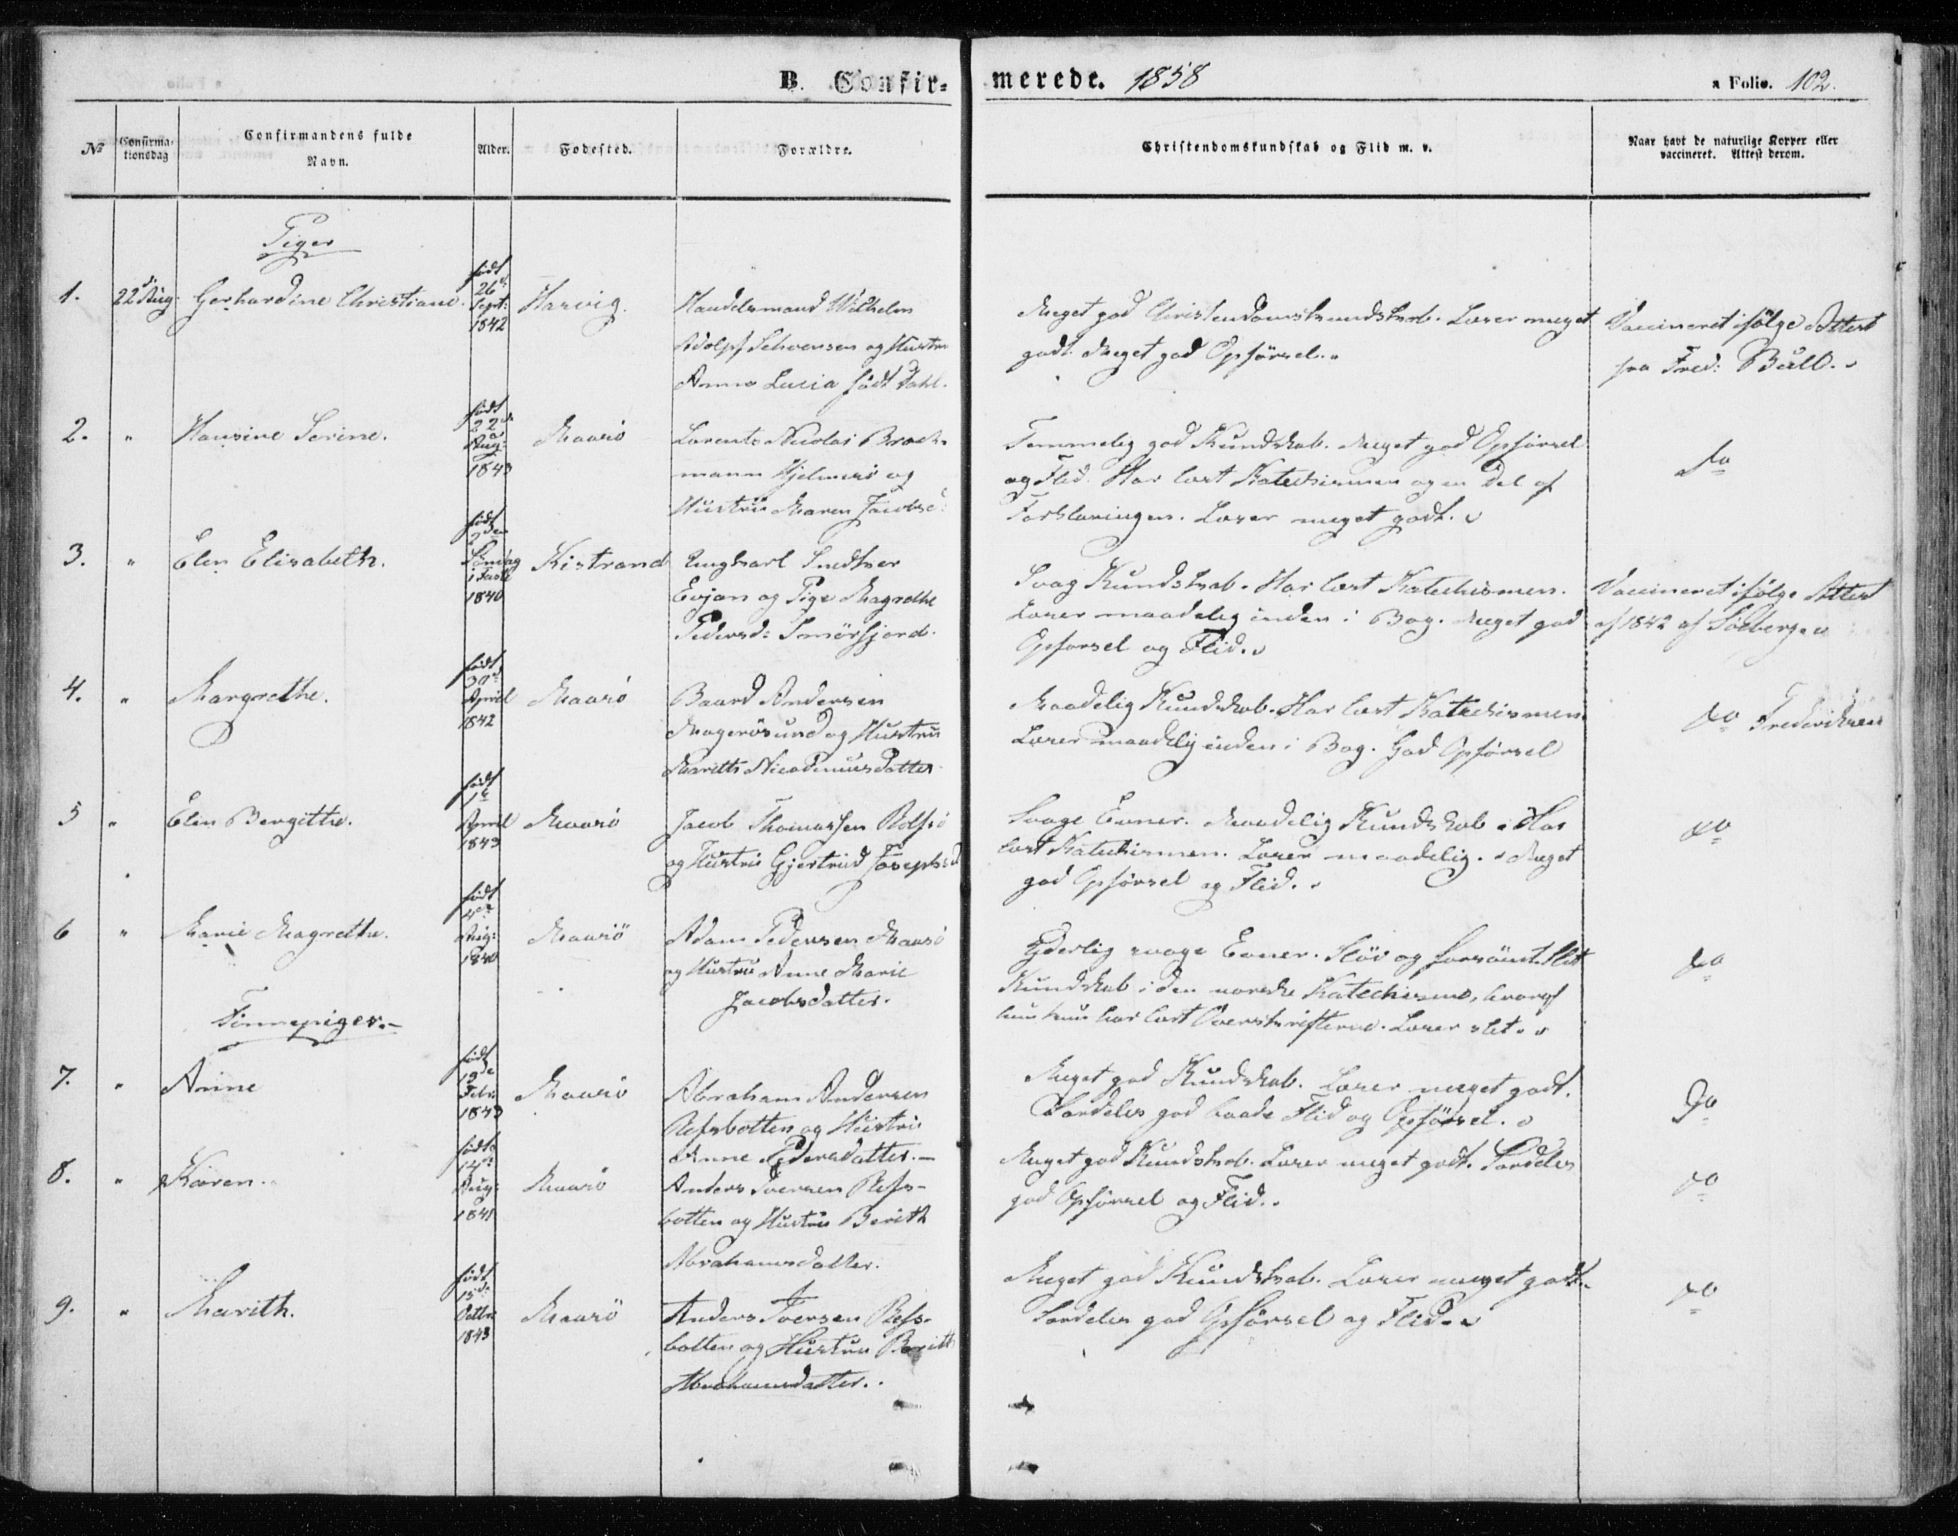 B. Confir-merede. 1858
a Folio. 102.
No Confirma-tionsdag Confirmandens fulde Navn. Alder. Fødested. Forældre. Christendomskundskab og Flid m. v. Naar havt de naturlige Kopper eller vaccineret. Attest derom.
Piger
1. 22d Aug: Gerhardine Christiane. født 26d Sept: 1842 Havvig.
Handelsmand Wilhelm
Adolph Schvensen og Hustru
Anna Lucia født Dahl.
Meget god Christendomskundskab. Læser meget
godt. Meget god Opførsel.
Vaccineret ifølge Attest
fra Fred: Bull.
2. " Hansine Serine. født 22d Aug: 1843 Maasö
Lorents Nicolai Broch-
mann Hjelmsö og
Hustru Maren Jacobsd:
Temmelig god Kundskab. Meget god Opførsel
og Flid. Har læst Katechismen og en Del af
Forklaringen. Læser meget godt.
do
3. " Elen Elisabeth. født 2den Søndag i Faste 1840 Kistrand
Ungkarl
Evjan og Pige Magrethe
Pedersd: Smörfjord.
Svag Kundskab. Har læst Katechismen.
Læser maadelig inden i Bog. Meget god
Opførsel og Flid.
Vaccineret ifølge Attest
af 1842 af
4. " Margrethe. født 30d April 1842 Maasö
Baard Andersen
Magerösund og Hustru
Marith Nicodemusdatter
Maadelig Kundskab. Har læst Katechismen
Læser maadelig inden i Bog. God Opførsel
do Frederiksen
5 " Elen Bergitte. født 1ste April 1843 Maasö
Jacob Thomassen Rolfsö
og Hustru Gjertrud Josephsd
Svage Evner. Maadelig Kundskab. Har
læst Katechismen. Læser maadelig. Meget
god Opførsel og Flid.
do
6 " Marie Magrethe. født 4de Aug: 1840 Maasö
Adam Pedersen Maasö
og Hustru Anne Marie
Jacobsdatter.
Yderlig svage Evner. Sløv og forsömt. Slet
Kundskab i den norske Katechisme, hvoraf
hun kun har læst Overskrifterne. Læser slet.
do
Finnepiger.
7. " Anne født 19de Febr: 1843 Maasö
Abraham Andersen
Refsbotten og Hustru
Anne Pedersdatter.
Meget god Kundskab. Læser meget godt.
Særdeles god baade Flid og Opførsel.
Do
8. " Karen. født 14de Aug: 1841 Maasö
Anders Iversen Refs-
botten og Hustru Berith
Abrahamsdatter.
Meget god Kundskab. Læser meget godt. Særdeles
god Opførsel og Flid.
do
9. " Marith. født 15de Octbr: 1843 Maasö
Anders Iversen Refs-
botten og Hustru Berith
Abrahamsdatter.
Meget god Kundskab. Læser meget godt.
Særdeles god Opførsel og Flid.
do